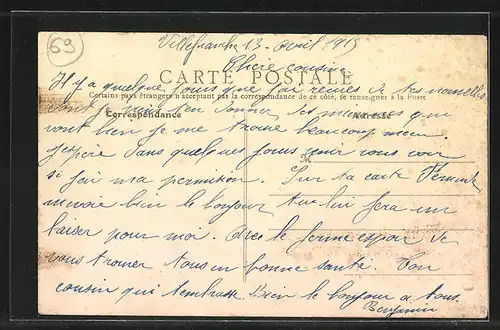 69
Villefranche 13 avril 1915
Chère cousine
CARTE POSTALE
Il y a quelque jours que j'ai reçues de tes nouvelles
Certains pays étrangers n'acceptant pas la correspondance de ce côté, se renseigner à la Poste
dont je vient t'en donner des miennes que
Correspondance
Adresse
vont bien je me trouve beaucoup mieux
J'espère dans quelques jours venir vous voir
M
si j'ai ma permission. Sur ta carte
m'envoie bien le bonjour tu lui fera un
baiser pour moi. Avec le ferme espoir de
vous trouver tous en bonne santé. Ton
cousin qui t'embrasse. Bien le bonjour a tous.
Benjamin